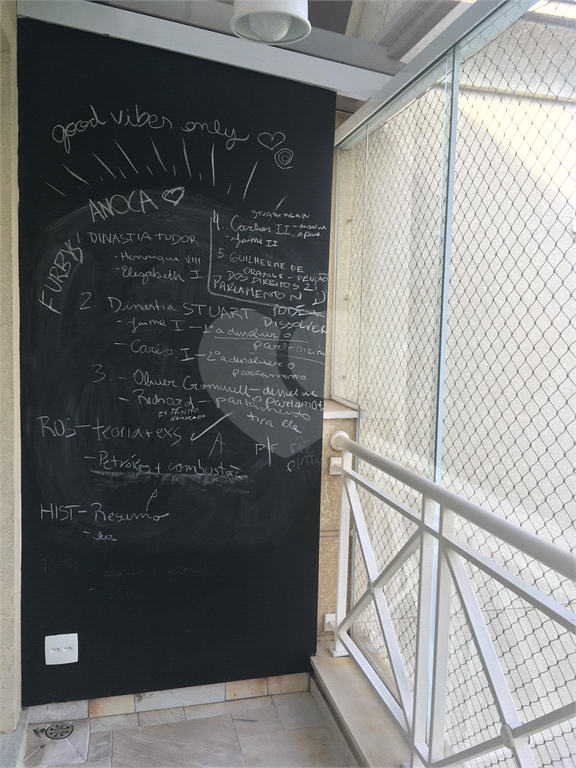 good vibes only
ANOCA
FURBY
1 DINASTIA TUDOR
- Henrique VIII
- Elizabeth I
2 Dinastia STUART
- Jaime I - 1ª a dissolver o
parlamento
- Carlos I - 2ª a dissolver o
parlamento
3. - Oliver Cromwell - dissolve
o parlamento
- Richard - parlamento
tira ele
STUART AGAIN
4. Carlos II - dissolve
- Jaime II
5. GUILHERME DE
ORANGE - PETIÇÃO
DOS DIREITOS
PARLAMENTO N
PODE
DISSOLVER
ROB - teoria + exs
A
- Petróleo + combustão
P/F
HIST - Resumo
- ler